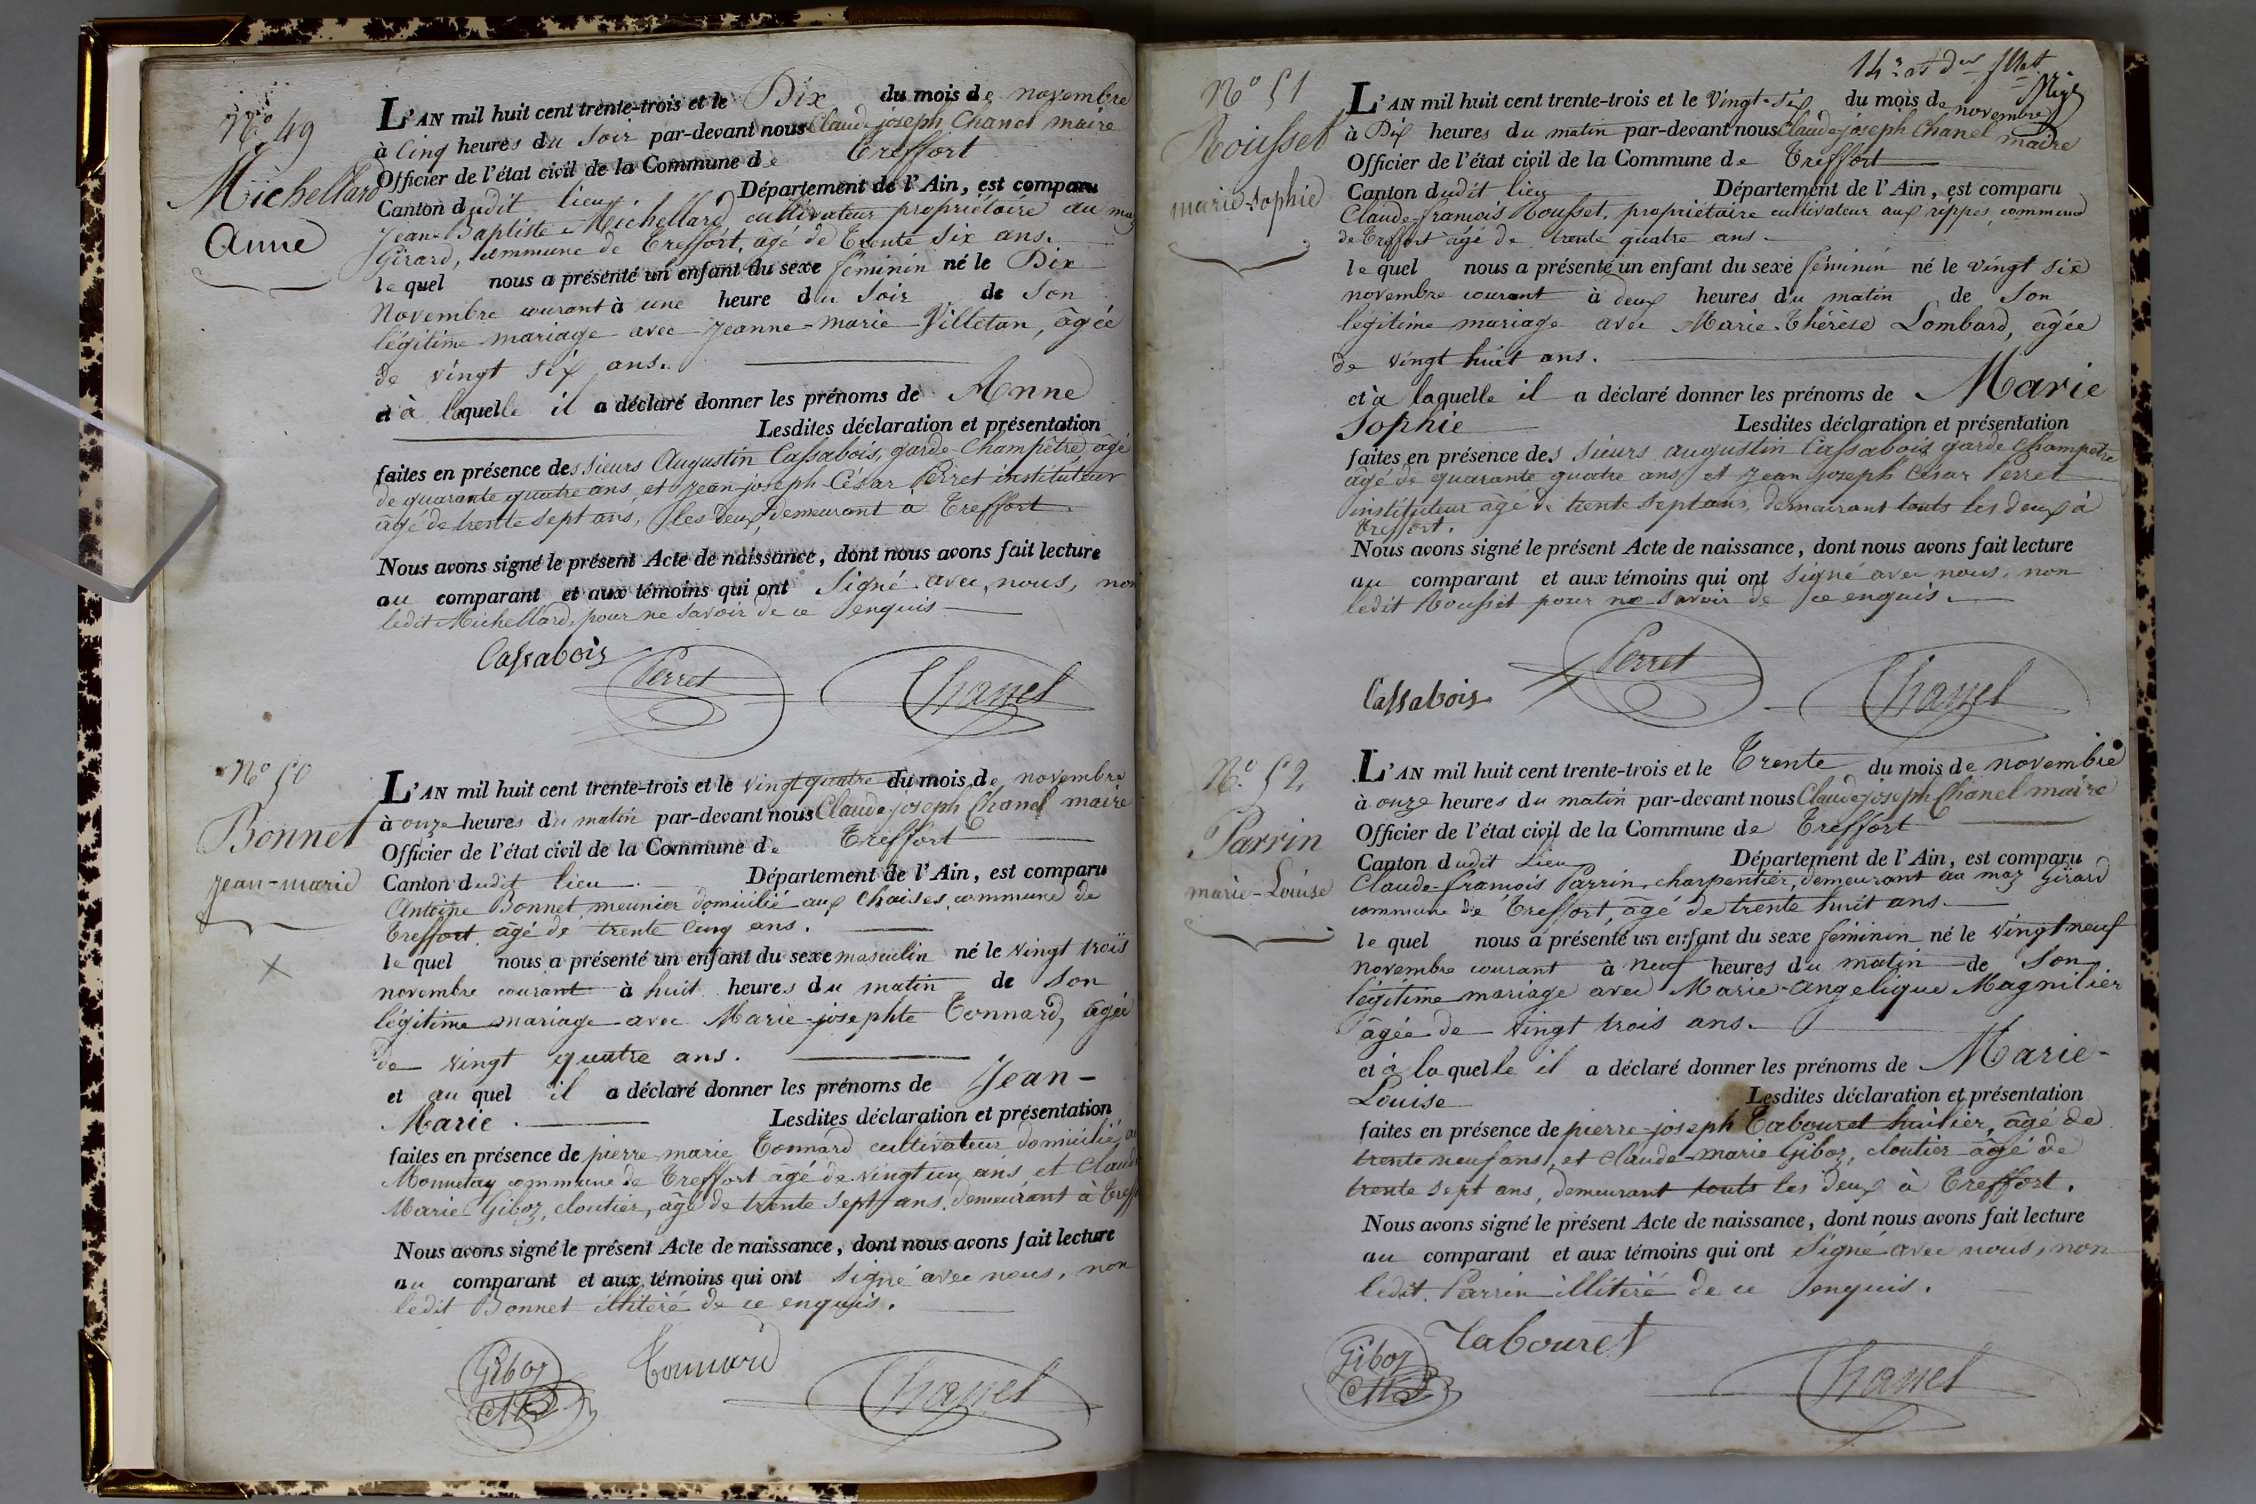 N.o 49
Michellard
Anne
L'AN mil huit cent trente-trois et le Dix du mois de novembre
à Cinq heures du Soir par-devant nous Claude joseph Chanel maire
Officier de l'état civil de la Commune de Treffort
Canton dudit lieu Département de l'Ain, est comparu
Jean-Baptiste Michellard cultivateur propriétaire au maz
Girard, commune de Treffort, âgé de Trente six ans.
lequel nous a présenté un enfant du sexe féminin né le Dix
Novembre courant à une heure du Soir de Son
légitime mariage avec Jeanne-marie Villetan, âgée
de vingt six ans.
et à laquelle il a déclaré donner les prénoms de Anne
Lesdites déclaration et présentation
faites en présence des sieurs Augustin Cassabois, garde-Champêtre, âgé
de quarante quatre ans, et jean-joseph-César Perret instituteur
âgé de trente sept ans, les deux demeurant à Treffort.
Nous avons signé le présent Acte de naissance, dont nous avons fait lecture
au comparant et aux témoins qui ont Signé avec nous, non
ledit Michellard, pour ne savoir de ce enquis
Cassabois Perret Chanel
N.o 50
Bonnet
jean-marie
X
L'AN mil huit cent trente-trois et le vingt quatre du mois de novembre
à onze heures du matin par-devant nous Claude joseph Chanel maire
Officier de l'état civil de la Commune de Treffort
Canton dudit lieu. Département de l'Ain, est comparu
Antoine Bonnet meunier domicilié aux Chaises, commune de
Treffort âgé de trente Cinq ans.
lequel nous a présenté un enfant du sexe masculin né le vingt trois
novembre courant à huit heures du matin de Son
légitime mariage avec Marie-josephte Tonnard, âgée
de vingt quatre ans.
et auquel il a déclaré donner les prénoms de Jean-
Marie. Lesdites déclaration et présentation
faites en présence de pierre-marie Tonnard cultivateur domicilié au
Monnetay commune de Treffort âgé de vingt un ans et Claude
Marie Giboz, cloutier, âgé de trente sept ans, demeurant à Treff
Nous avons signé le présent Acte de naissance, dont nous avons fait lecture
au comparant et aux témoins qui ont signé avec nous, non
ledit Bonnet illitéré de ce enquis.
Giboz CM Tonnard Chanel
14.e et der fllet
N.o 51
Rousset
marie-sophie
L'AN mil huit cent trente-trois et le vingt-six du mois de novembre
à Dix heures du matin par-devant nous Claude-joseph Chanel maire
Officier de l'état civil de la Commune de Treffort
Canton dudit lieu Département de l'Ain, est comparu
Claude-françois Rousset, propriétaire cultivateur aux rippes, commune
de Treffort âgé de trente quatre ans.
lequel nous a présenté un enfant du sexe féminin né le vingt six
novembre courant à deux heures du matin de Son
légitime mariage avec Marie-Thérèse Lombard, âgée
de vingt huit ans.
et à laquelle il a déclaré donner les prénoms de Marie
Sophie Lesdites déclaration et présentation
faites en présence des sieurs augustin Cassabois garde Champetre
âgé de quarante quatre ans, et jean joseph César Perret
instituteur âgé de trente sept ans, demeurant touts les deux à
treffort.
Nous avons signé le présent Acte de naissance, dont nous avons fait lecture
au comparant et aux témoins qui ont signé avec nous, non
ledit Rousset pour ne savoir de ce enquis.
Cassabois Perret Chanel
N.o 52.
Parrin
marie-Louise
L'AN mil huit cent trente-trois et le Trente du mois de novembre
à onze heures du matin par-devant nous Claude joseph Chanel maire
Officier de l'état civil de la Commune de Treffort
Canton dudit Lieu Département de l'Ain, est comparu
Claude-françois Parrin, charpentier, demeurant au maz Girard
commune de Treffort, âgé de trente huit ans.
lequel nous a présenté un enfant du sexe féminin né le vingt neuf
novembre courant à neuf heures du matin de Son
légitime mariage avec Marie-Angelique Magnilier
âgée de vingt trois ans.
et à laquelle il a déclaré donner les prénoms de Marie-
Louise Lesdites déclaration et présentation
faites en présence de pierre-joseph Tabouret huilier, âgé de
trente neuf ans, et Claude-marie Giboz, cloutier âgé de
trente sept ans, demeurant touts les deux à Treffort.
Nous avons signé le présent Acte de naissance, dont nous avons fait lecture
au comparant et aux témoins qui ont Signé avec nous, non
ledit Parrin illitéré de ce enquis.
Giboz CM Tabouret Chanel